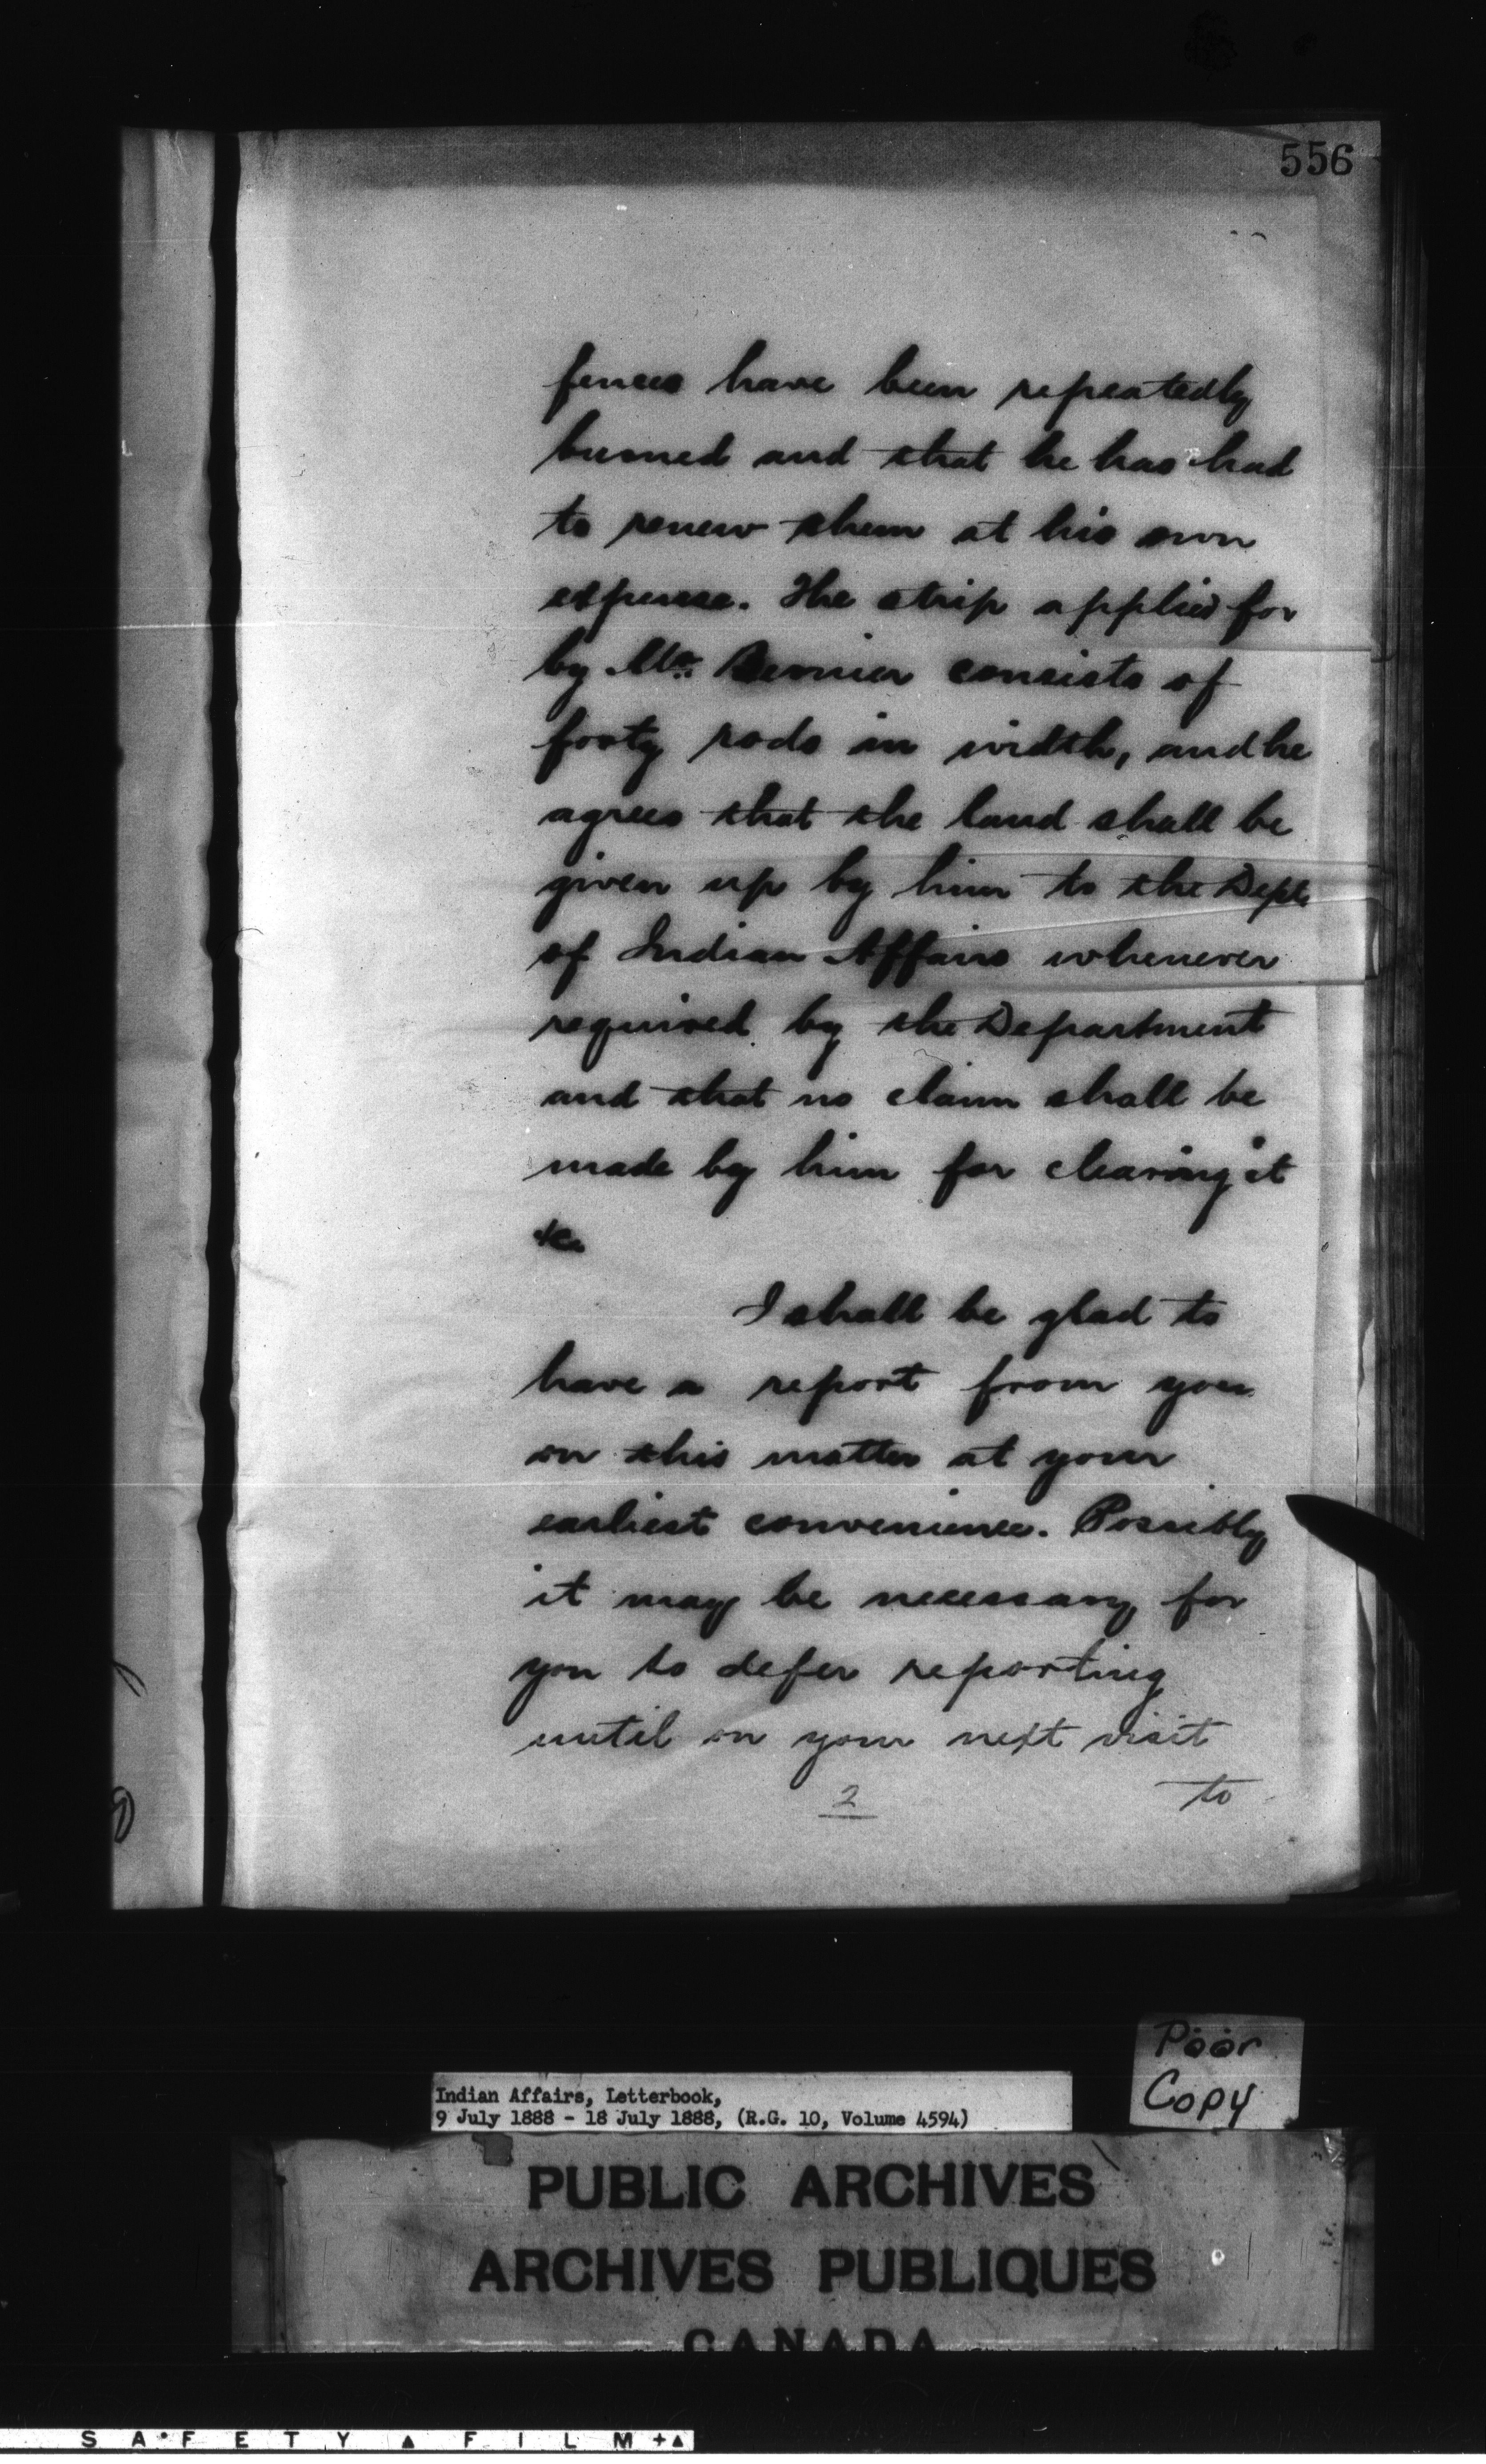 556
fences have been repeatedly
burned and that he has had
to renew them at his own
expense. The strip applied for
by Mr. Bernier consists of
forty rods in width, and he
agrees that the land shall be
given up by him to the Dept.
of Indian Affairs whenever
required by the Department
and that no claim shall be
made by him for clearing it
&c.
I shall be glad to
have a report from you
on this matter at your
earliest convenience. Possibly
it may be necessary for
you to defer reporting
until on your next visit
2 to
Poor
Copy
Indian Affairs, Letterbook,
9 July 1888 - 18 July 1888, (R.G. 10, Volume 4594)
PUBLIC ARCHIVES
ARCHIVES PUBLIQUES
CANADA
SAFETY FILM